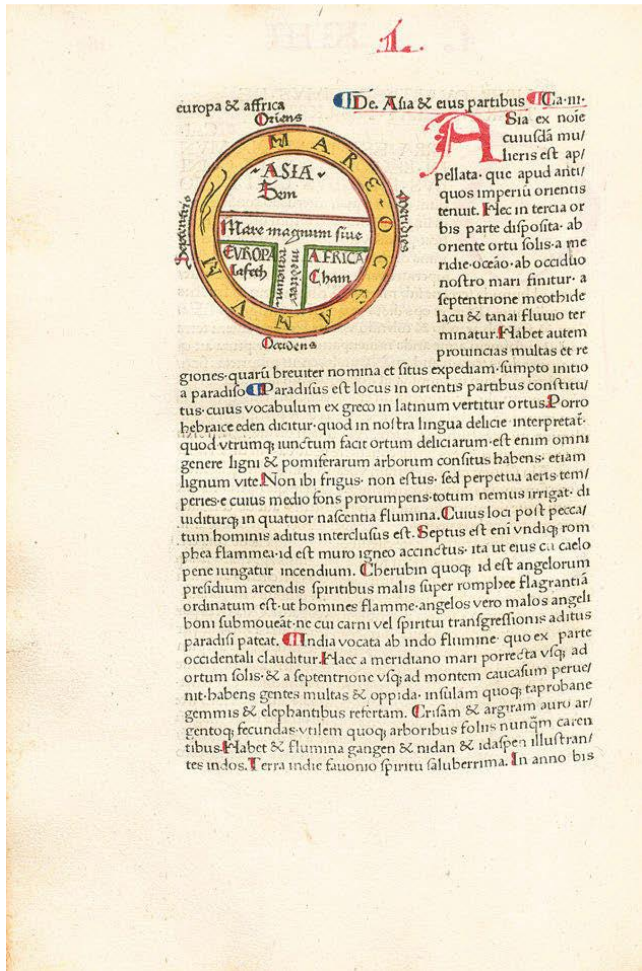 1.
europa & affrica
De. Asia & eius partibus Ca·iii·
Oriens
MARE OCEANVM
Septentrio
Meridies
ASIA
Sem
Mare magnum siue
EVROPA
Iafeth
mediterraneum
AFRICA
Cham
Occidens
ASia ex noīe
cuiusdā mu/
lieris est ap/
pellata· que apud anti/
quos imperiū orientis
tenuit. Hec in tercia or
bis parte disposita· ab
oriente ortu solis· a me
ridie·oceāo·ab occiduo
nostro mari finitur· a
septentrione meothide
lacu & tanai fluuio ter
minatur. Habet autem
prouincias multas et re
giones·quarū breuiter nomina et situs expediam·sumpto initio
a paradiso Paradisus est locus in orientis partibus constitu/
tus·cuius vocabulum ex greco in latinum vertitur ortus. Porro
hebraice eden dicitur·quod in nostra lingua delicie interpretat̄·
quod vtrumqꝫ iunctum facit ortum deliciarum·est enim omni
genere ligni & pomiferarum arborum consitus habens· etiam
lignum vite. Non ibi frigus· non estus· sed perpetua aeris tem/
peries·e cuius medio fons prorumpens·totum nemus irrigat· di
uiditurqꝫ in quatuor nascentia flumina. Cuius loci post pecca/
tum hominis aditus interclusus est. Septus est eni vndiqꝫ rom
phea flammea·id est muro igneo accinctus· ita ut eius cū caelo
pene iungatur incendium. Cherubin quoqꝫ id est angelorum
presidium arcendis spiritibus malis super romphee flagrantiā
ordinatum est·ut homines flamme·angelos vero malos angeli
boni submoueāt·ne cui carni vel spiritui transgressionis aditus
paradisi pateat. India vocata ab indo flumine· quo ex parte
occidentali clauditur. Haec a meridiano mari porrecta vsqꝫ ad
ortum solis·& a septentrione vsqꝫ ad montem caucasum perue/
nit·habens gentes multas & oppida· insulam quoqꝫ taprobane
gemmis & elephantibus refertam. Crisam & argiram auro ar/
gentoqꝫ fecundas·vtilem quoqꝫ arboribus foliis nunqꝫ̄ caren
tibus. Habet & flumina gangen & nidan & idaspen illustran/
tes indos. Terra indie fauonio spiritu saluberrima. In anno bis